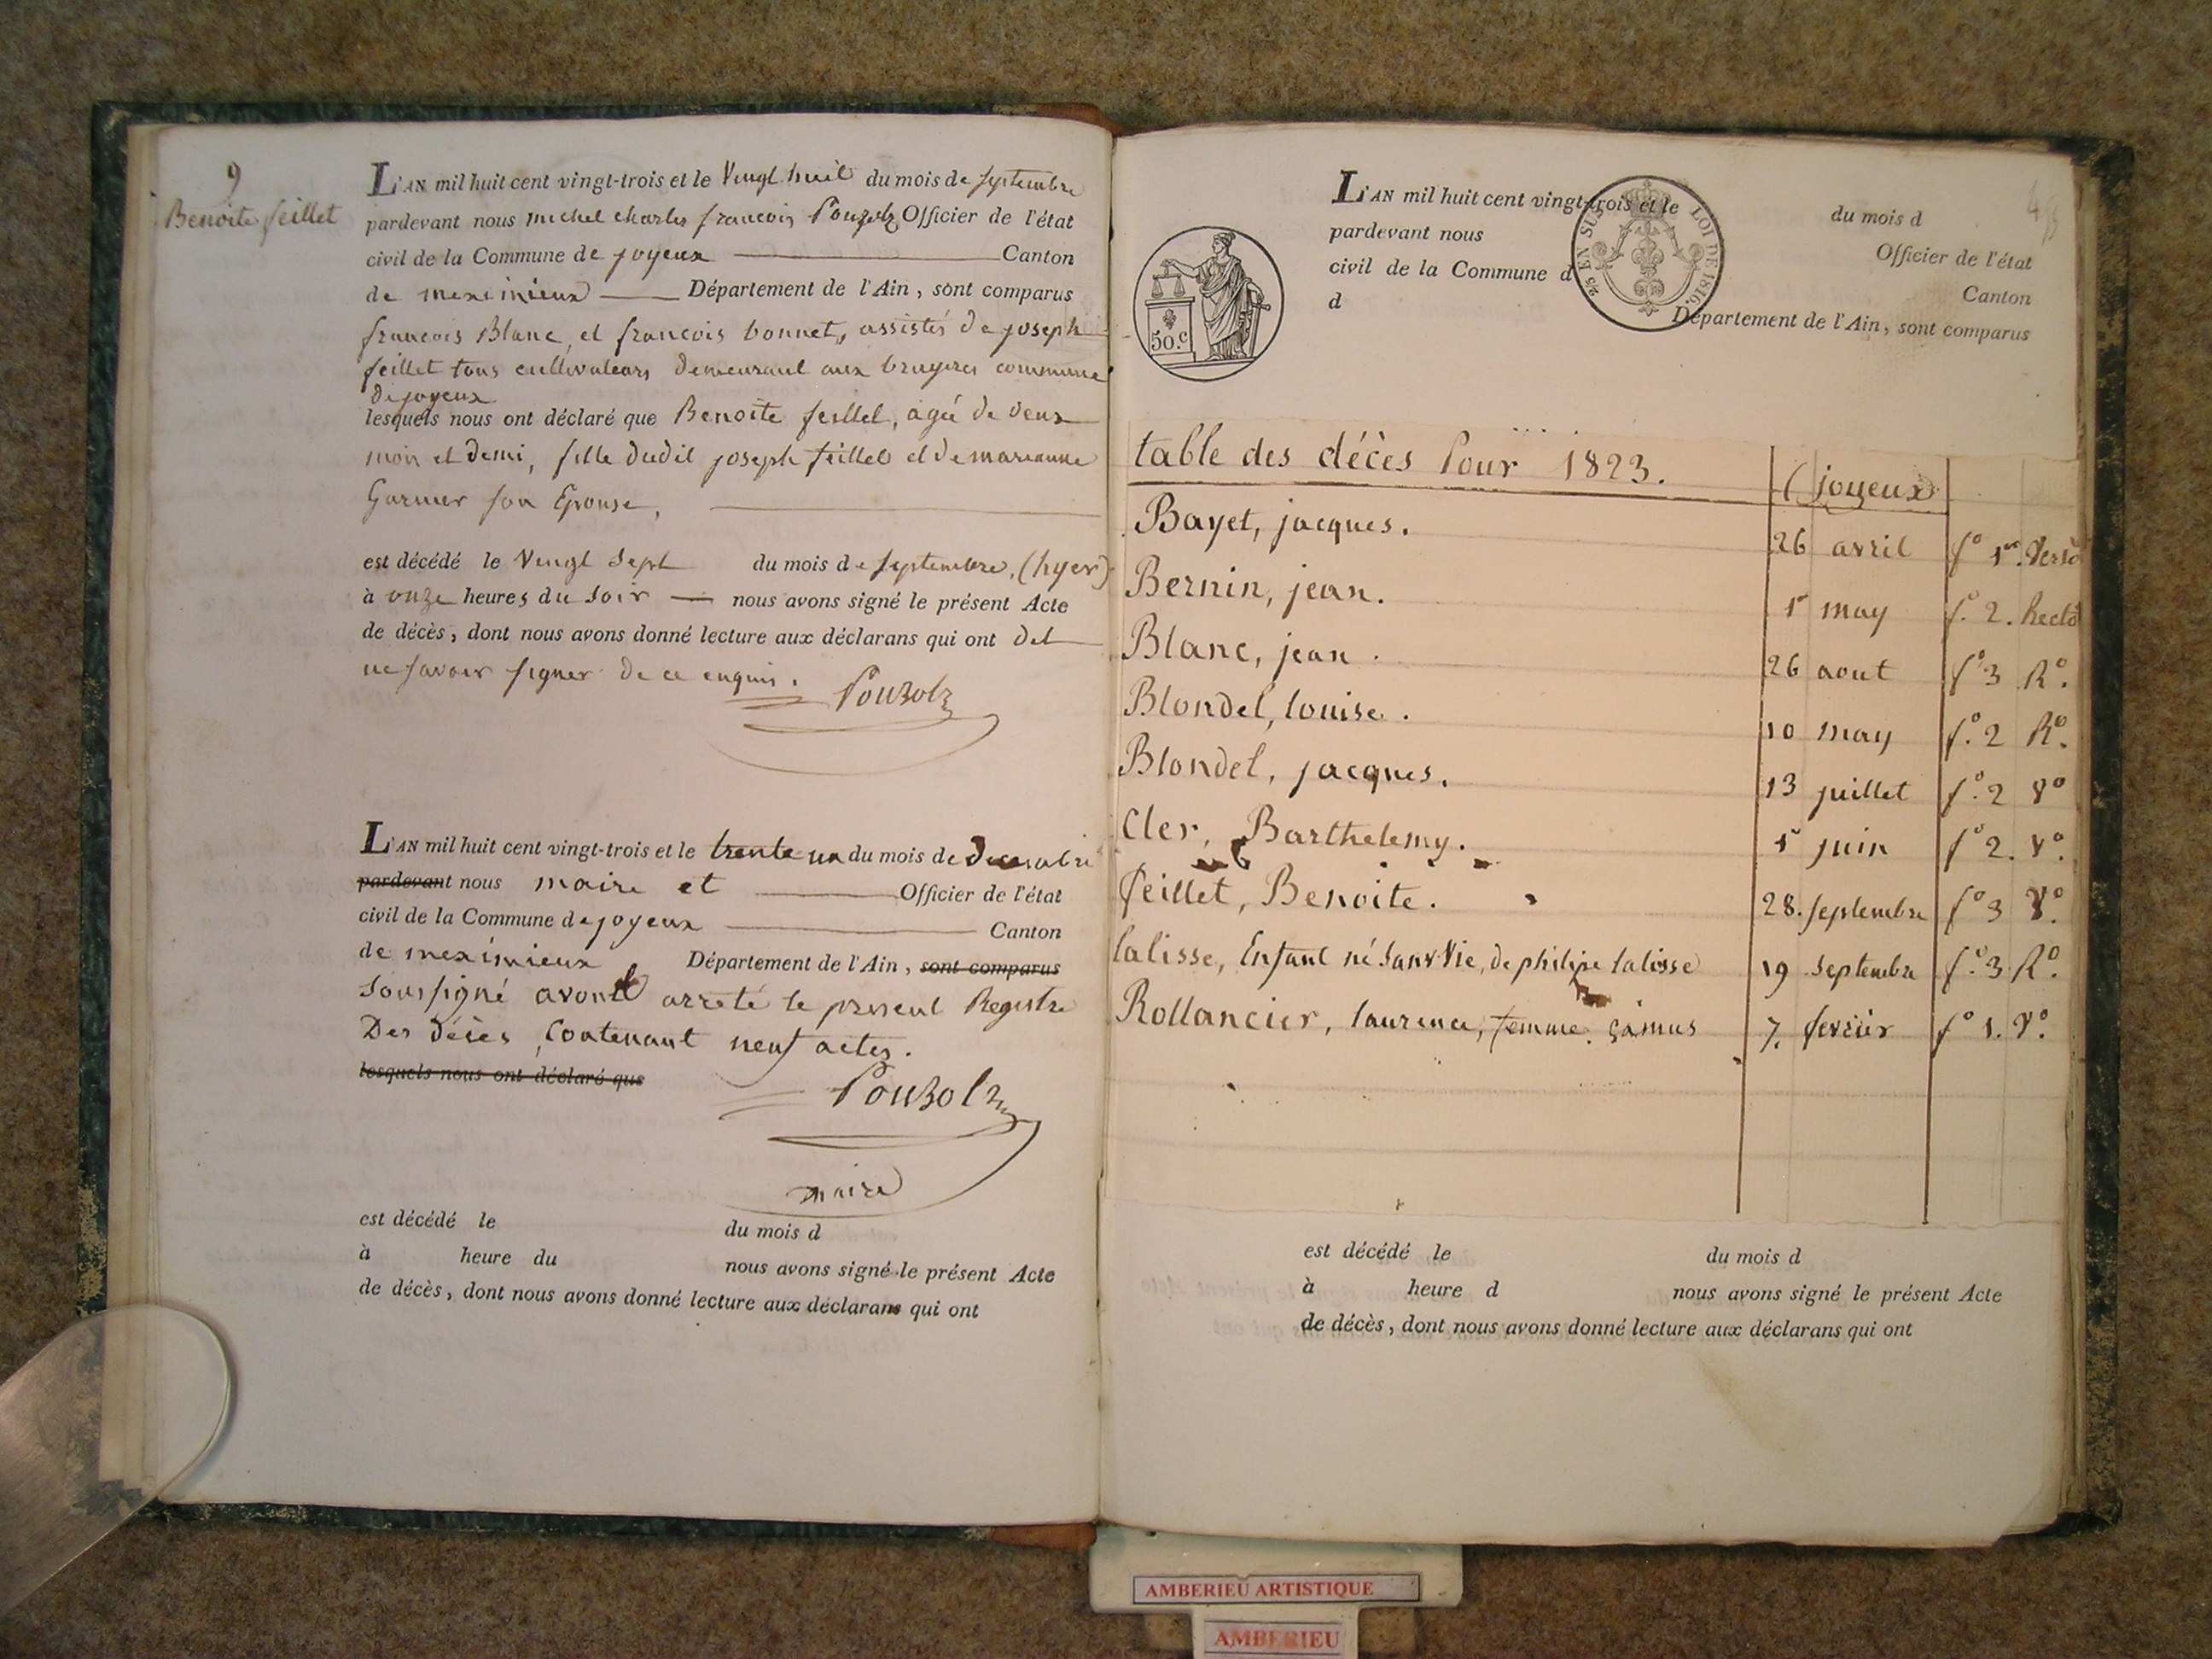 9
Benoite feillet
L'AN mil huit cent vingt-trois et le Vingt huit du mois de septembre
pardevant nous michel charles francois Pouzolz Officier de l'état
civil de la Commune de joyeux Canton
de meximieux Département de l'Ain, sont comparus
francois Blanc, et francois bonnet, assistés de joseph
feillet tous cultivateurs demeurant aux bruyeres commune
de joyeux
lesquels nous ont déclaré que Benoite feillet, agée de deux
mois et demi, fille dudit joseph feillet et de marianne
Garnier son Epouse,
est décédé le Vingt Sept du mois de septembre, (hyer)
à onze heures du soir nous avons signé le présent Acte
de décès, dont nous avons donné lecture aux déclarans qui ont dit
ne savoir signer de ce enquis.
Pouzolz
L'AN mil huit cent vingt-trois et le trente un du mois de Decembre
pardevant nous maire et Officier de l'état
civil de la Commune de joyeux Canton
de meximieux Département de l'Ain, sont comparus
Soussigné avons arreté le present Registre
Des décès, Contenant neuf actes.
lesquels nous ont déclaré que
Pouzolz
maire
est décédé le du mois d
à heure du nous avons signé le présent Acte
de décès, dont nous avons donné lecture aux déclarans qui ont
L'AN mil huit cent vingt-trois et le du mois d
pardevant nous Officier de l'état
civil de la Commune d Canton
d Département de l'Ain, sont comparus
50.c
25 EN SUS LOI DE 1816.
table des décès Pour 1823. (joyeux)
Bayet, jacques. 26 avril f° 1er. Verso
Bernin, jean. 5 may f°. 2. Recto
Blanc, jean. 26 aout f° 3 R°.
Blondel, louise. 10 may f°. 2 R°.
Blondel, jacques. 13 juillet f°. 2 V°
Cler, Barthelemy. 5 juin f° 2. V°.
feillet, Benoite. 28. septembre f° 3 V°.
lalisse, Enfant né Sans Vie, de philipe lalisse 19 septembre f°. 3 R°.
Rollancier, laurence, femme camus 7. fevrier f° 1. V°.
est décédé le du mois d
à heure d nous avons signé le présent Acte
de décès, dont nous avons donné lecture aux déclarans qui ont
AMBERIEU ARTISTIQUE
AMBERIEU